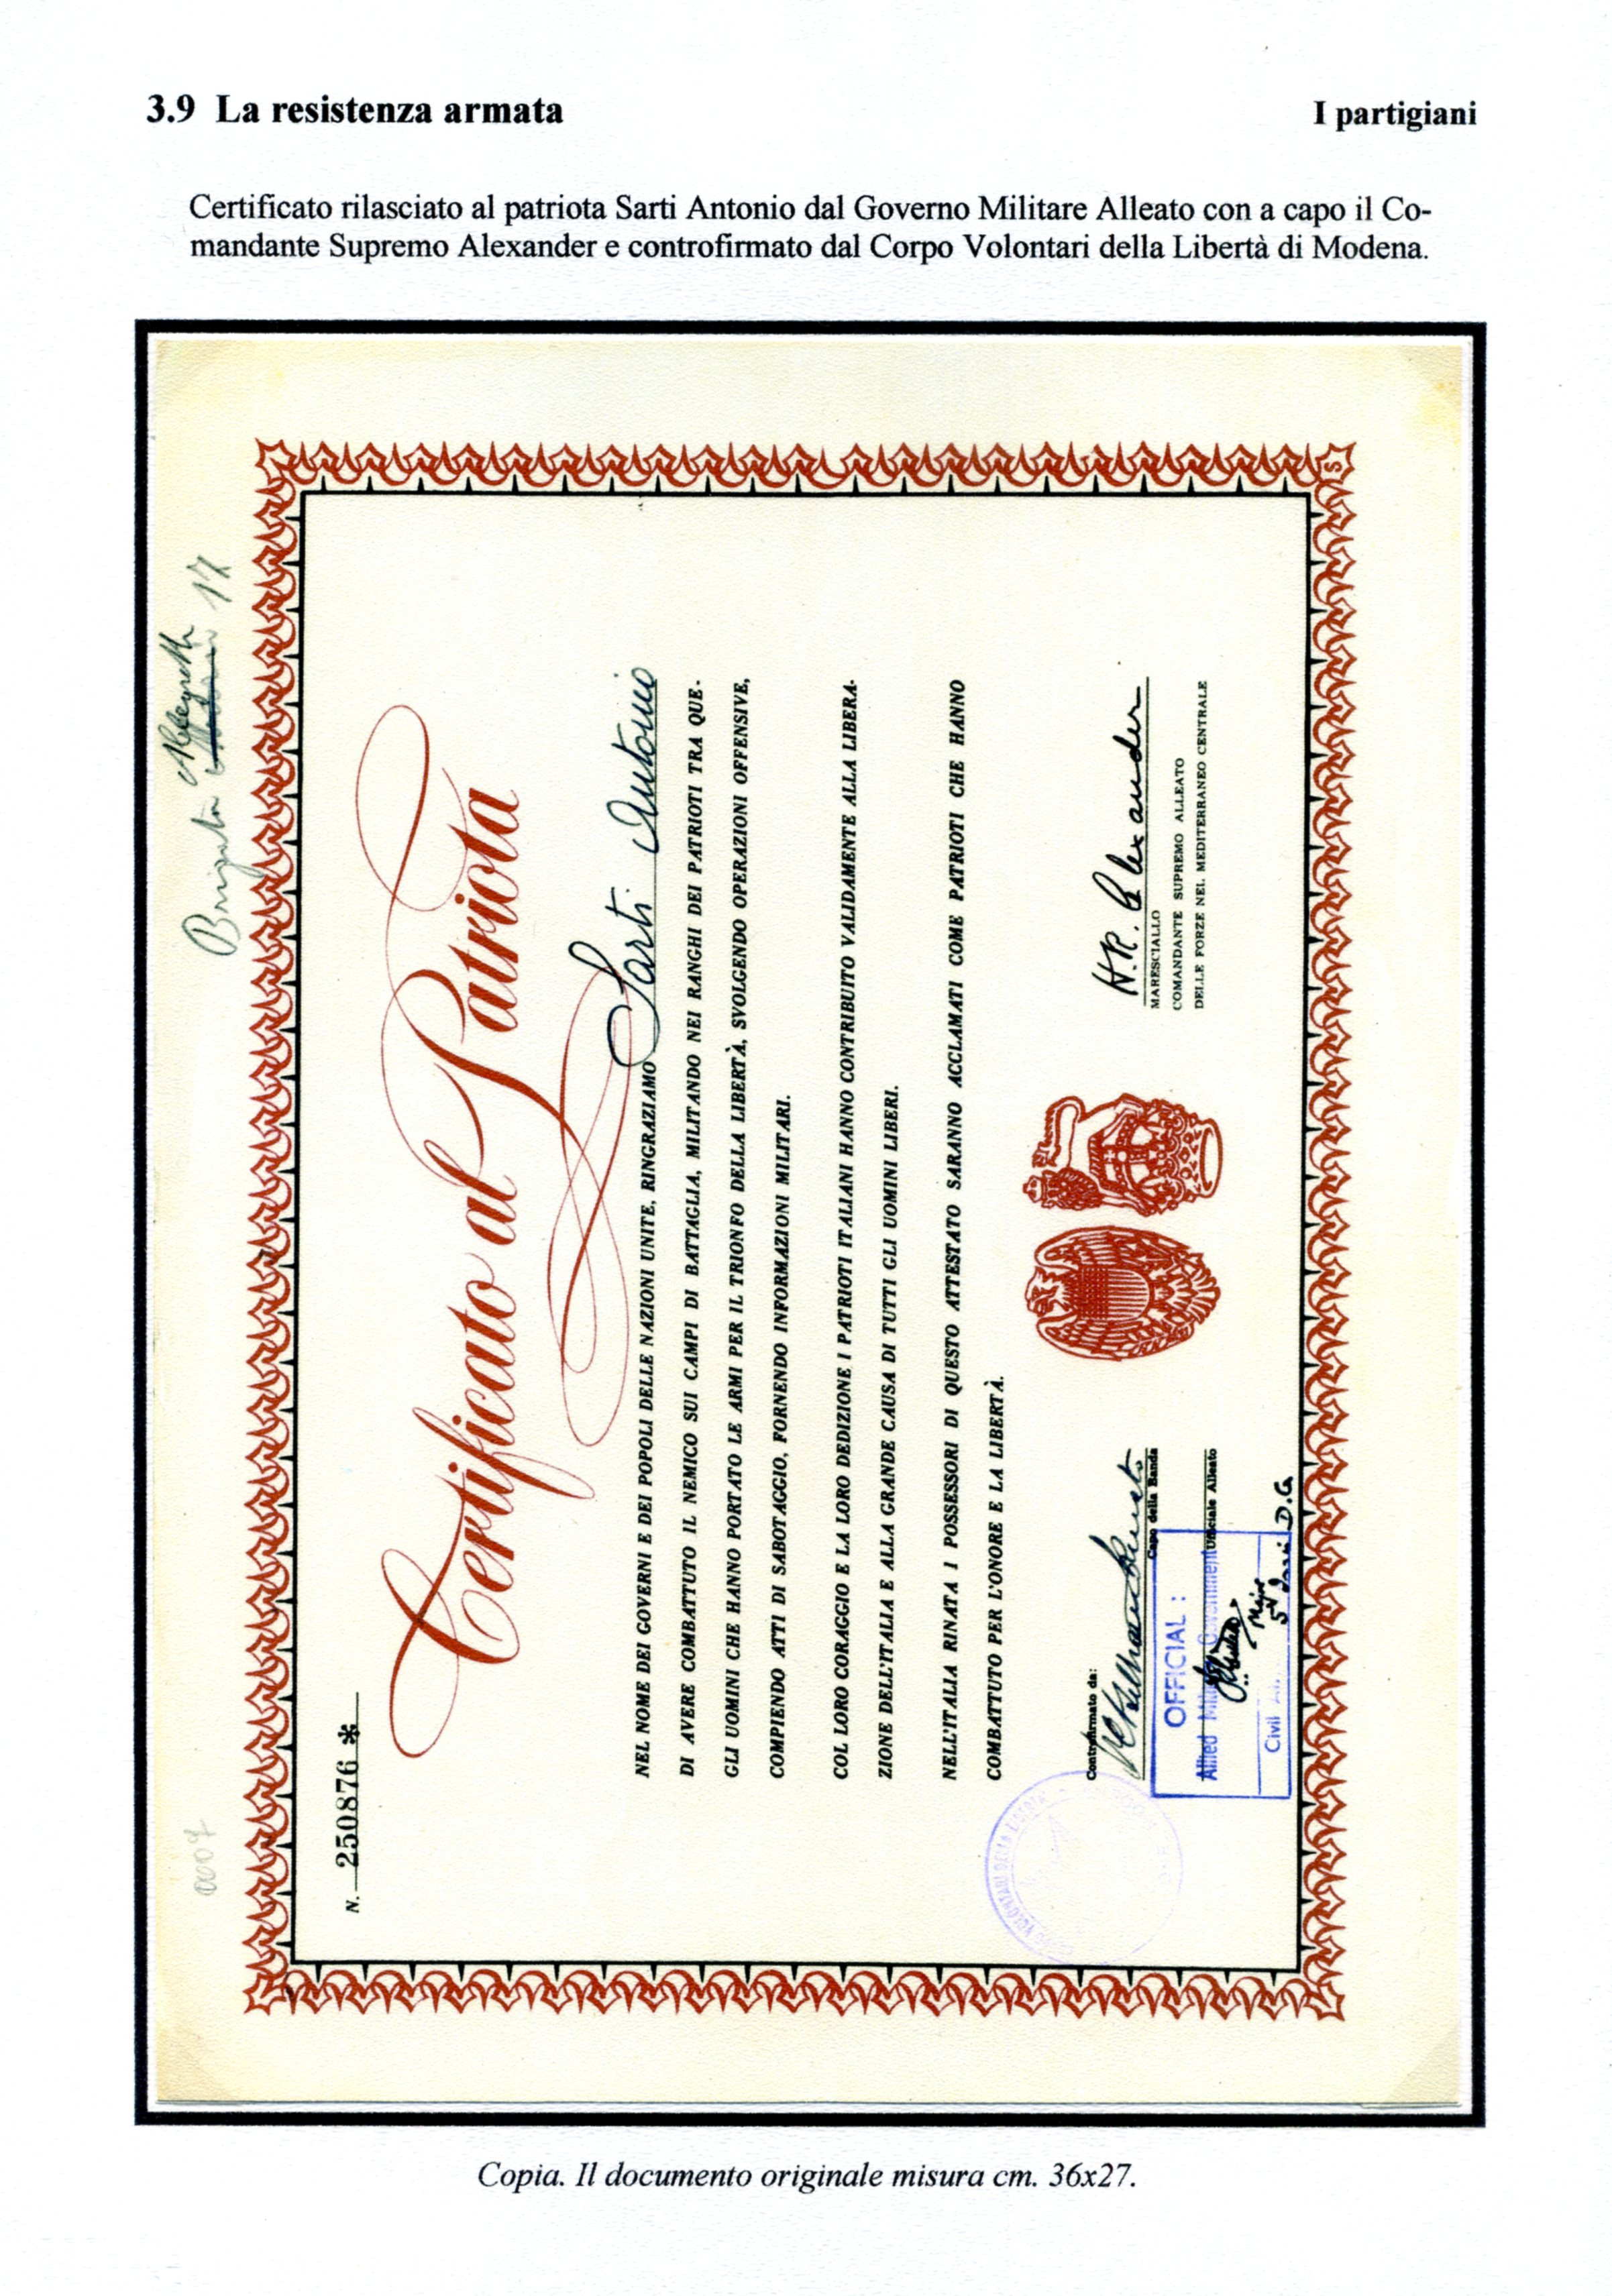 3.9 La resistenza armata
I partigiani
Certificato rilasciato al patriota Sarti Antonio dal Governo Militare Alleato con a capo il Co-
mandante Supremo Alexander e controfirmato dal Corpo Volontari della Libertà di Modena.
Brigata 17
N. 250876 *
Certificato al Patriota
NEL NOME DEI GOVERNI E DEI POPOLI DELLE NAZIONI UNITE, RINGRAZIAMO Sarti Antonio
DI AVERE COMBATTUTO IL NEMICO SUI CAMPI DI BATTAGLIA, MILITANDO NEI RANGHI DEI PATRIOTI TRA QUE-
GLI UOMINI CHE HANNO PORTATO LE ARMI PER IL TRIONFO DELLA LIBERTÀ, SVOLGENDO OPERAZIONI OFFENSIVE,
COMPIENDO ATTI DI SABOTAGGIO, FORNENDO INFORMAZIONI MILITARI.
COL LORO CORAGGIO E LA LORO DEDIZIONE I PATRIOTI ITALIANI HANNO CONTRIBUITO VALIDAMENTE ALLA LIBERA-
ZIONE DELL'ITALIA E ALLA GRANDE CAUSA DI TUTTI GLI UOMINI LIBERI.
NELL'ITALIA RINATA I POSSESSORI DI QUESTO ATTESTATO SARANNO ACCLAMATI COME PATRIOTI CHE HANNO
COMBATTUTO PER L'ONORE E LA LIBERTÀ.
Controfirmato da:
Capo della Banda
Ufficiale Alleato
OFFICIAL :
Allied Military Government
Major
Civil
D.G.
VOLONTARI DELLA LIBERTÀ
H.R. Alexander
MARESCIALLO
COMANDANTE SUPREMO ALLEATO
DELLE FORZE NEL MEDITERRANEO CENTRALE
Copia. Il documento originale misura cm. 36x27.